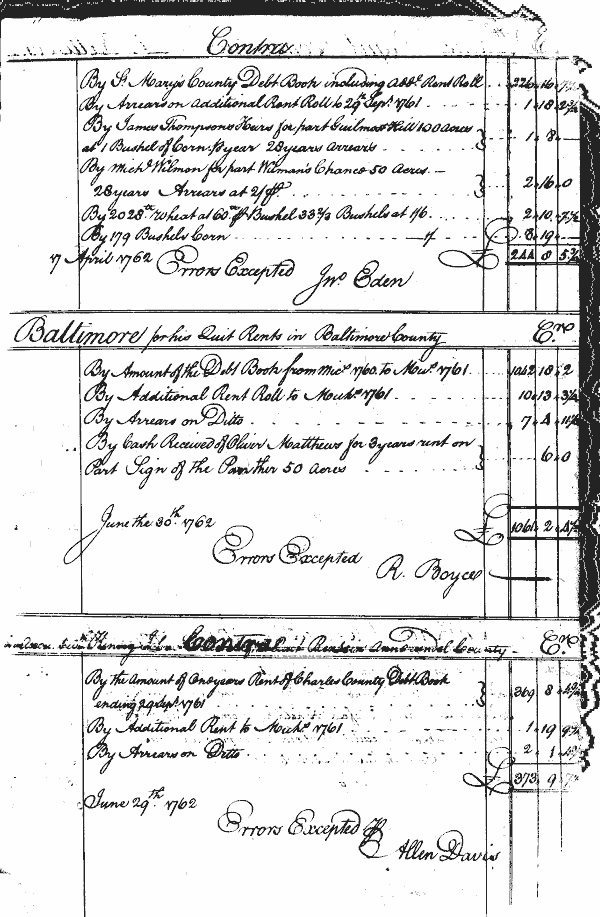 Contra
By St. Mary's County Debt Book including addl. Rent Roll 226 . 16 .
By Arrears on additional Rent Roll to 29th Sept. 1761 1 . 18 . 2¾
By James Thompson's Heirs for part Guilmott Hill 100 acres
at 1 Bushel of Corn p year 28 years arrears 1 . 8 . -
By Michl. Wilmon for part Wilman's Chance 50 Acres. -
28 years Arrears at 2/ p 2 . 16 . 0
By 2028 lb wheat at 60 lb p Bushel 33¾ Bushels at 1/6 2 . 10 . 7½
By 179 Bushels Corn 1/ 8 . 19 . -
£ 244 8 5¾
17 April 1762 Errors Excepted
Jno. Eden
Baltimore for his Quit Rents in Baltimore County Cr.
By Amount of the Debt Book from Mics. 1760 to Mics. 1761 1042 18 . 2
By Additional Rent Roll to Michs. 1761 10 . 13 . 3¾
By Arrears on Ditto 7 . 4 . 11½
By Cash Received of Oliver Matthews for 3 years rent on
Part Sign of the Panther 50 acres 6 . 0
June the 30th. 1762 £ 1061 2 . 4½
Errors Excepted
R. Boyce
Contra Rents in Ann Arundel County Cr.
By the Amount of One years Rent of Charles County Debt Book
ending 29 Sept. 1761 369 8
By Additional Rent to Michs. 1761 1 . 19 9½
By Arrears on Ditto 2 . 1
£ 373 . 9
June 29th. 1762
Errors Excepted p
Allen Davis